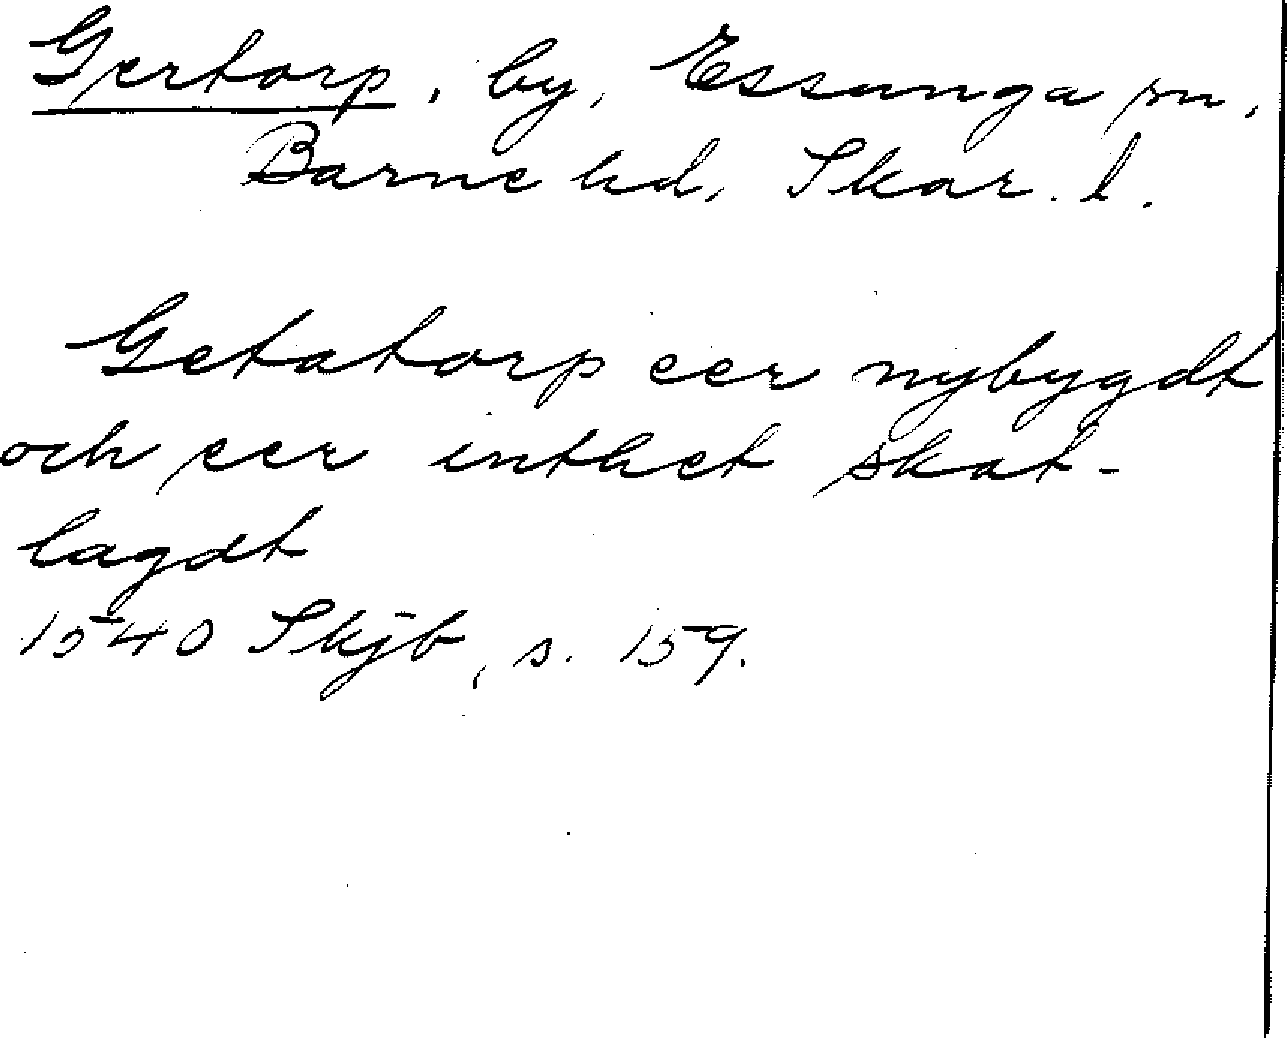 Gertorp, by, Essunga sn,
Barne hd, Skar. l.
Getatorp eer nybygdt
och eer inthet skat-
lagdt
1540 Skjb, s. 159.